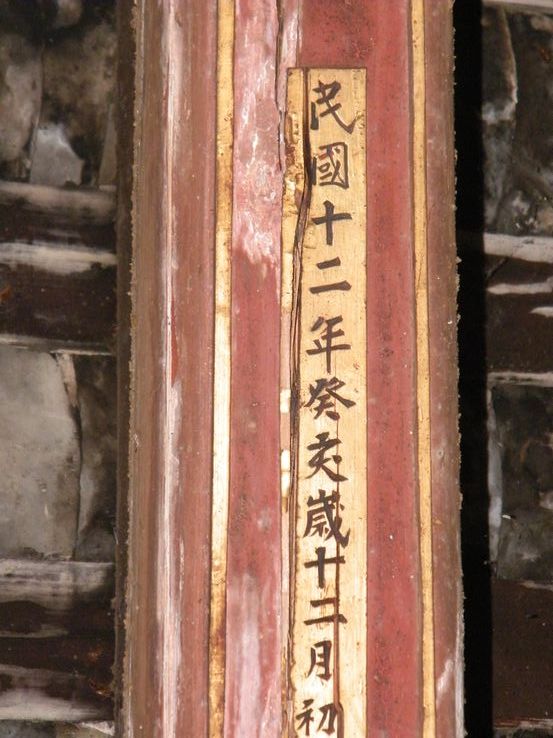 民國十二年癸亥歲十二月初